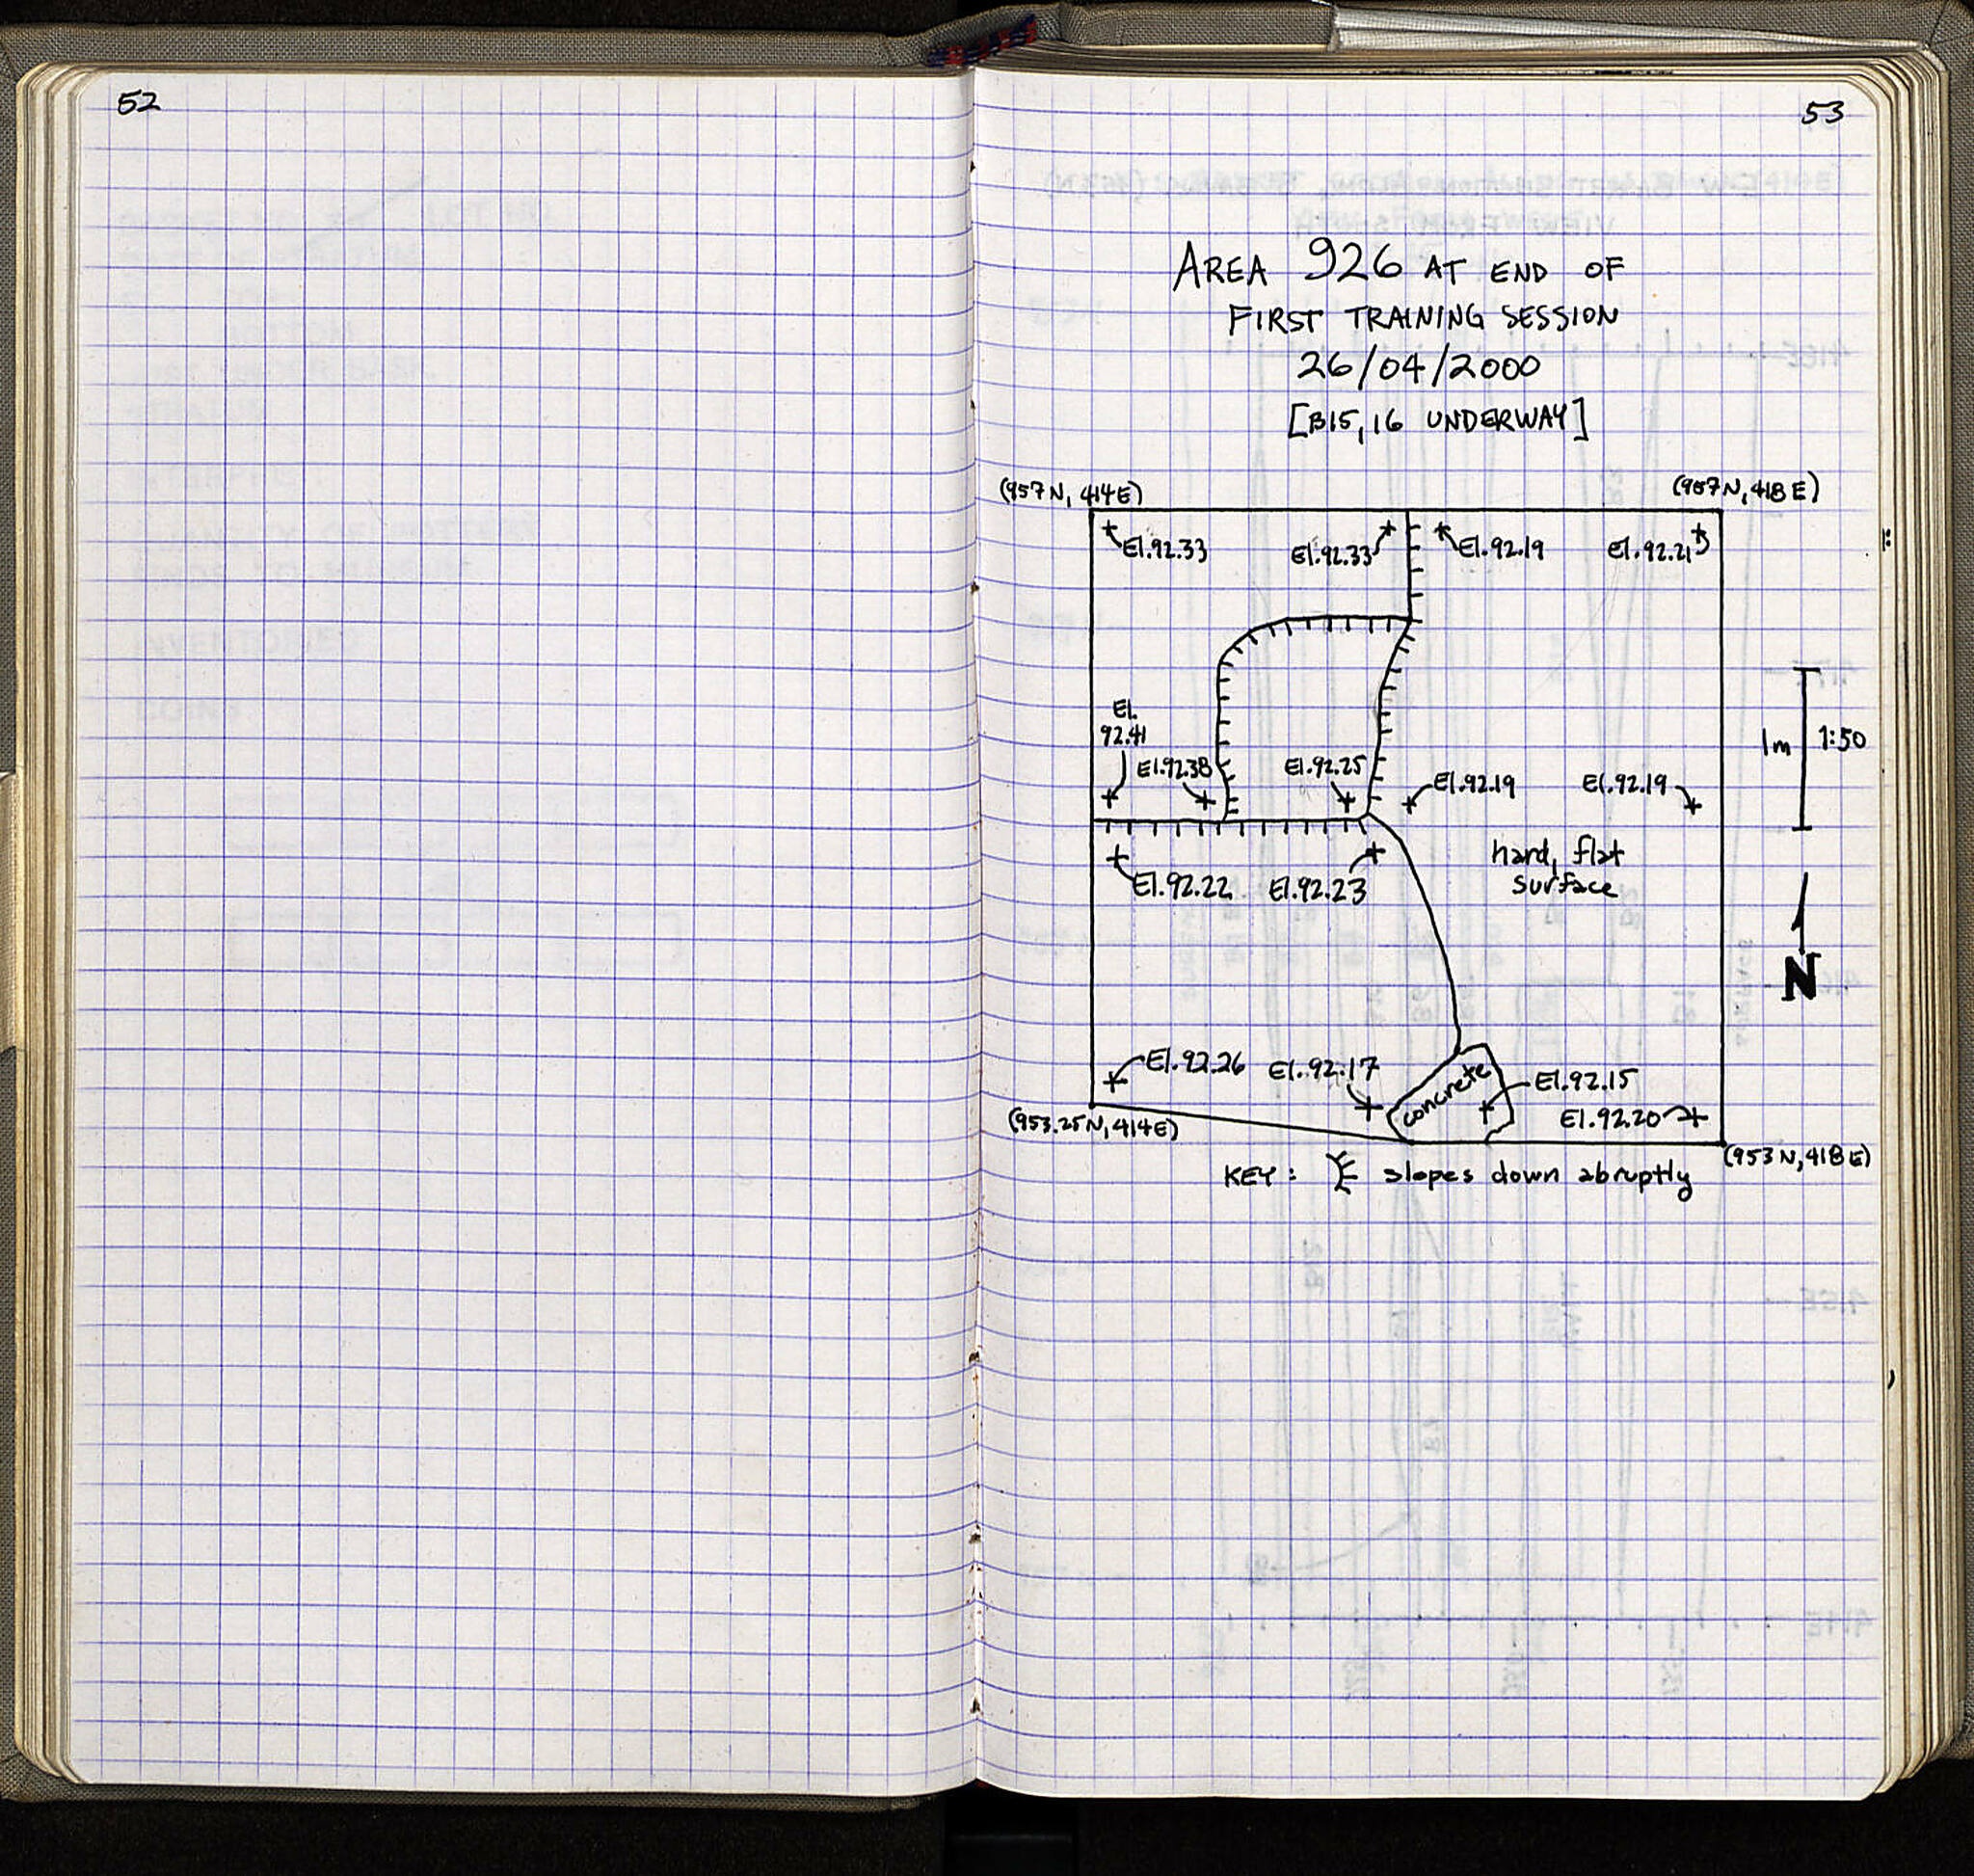 52
53
AREA 926 AT END OF
FIRST TRAINING SESSION
26/04/2000
[B15, 16 UNDERWAY]
(957N, 414E)
(957N, 418E)
El.92.33
El.92.33
El.92.19
El.92.21
El.
92.41
El.92.38
El.92.25
El.92.19
El.92.19
1m
1:50
El.92.22
El.92.23
hard, flat
surface
N
El.92.26
El.92.17
concrete
El.92.15
El.92.20
(953.25N, 414E)
(953N, 418E)
KEY: slopes down abruptly